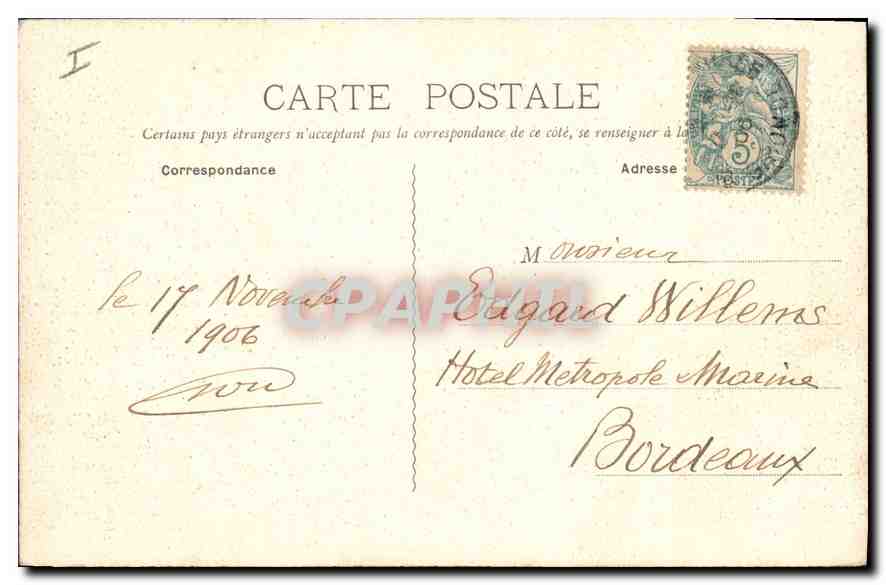 I
CARTE POSTALE
Certains pays étrangers n'acceptant pas la correspondance de ce côté, se renseigner à la
Correspondance
Adresse
5c
POSTE
le 17 Novembre
1906
Monsieur
Edgard Willems
Hotel Metropole & Marine
Bordeaux
CPAPHIL